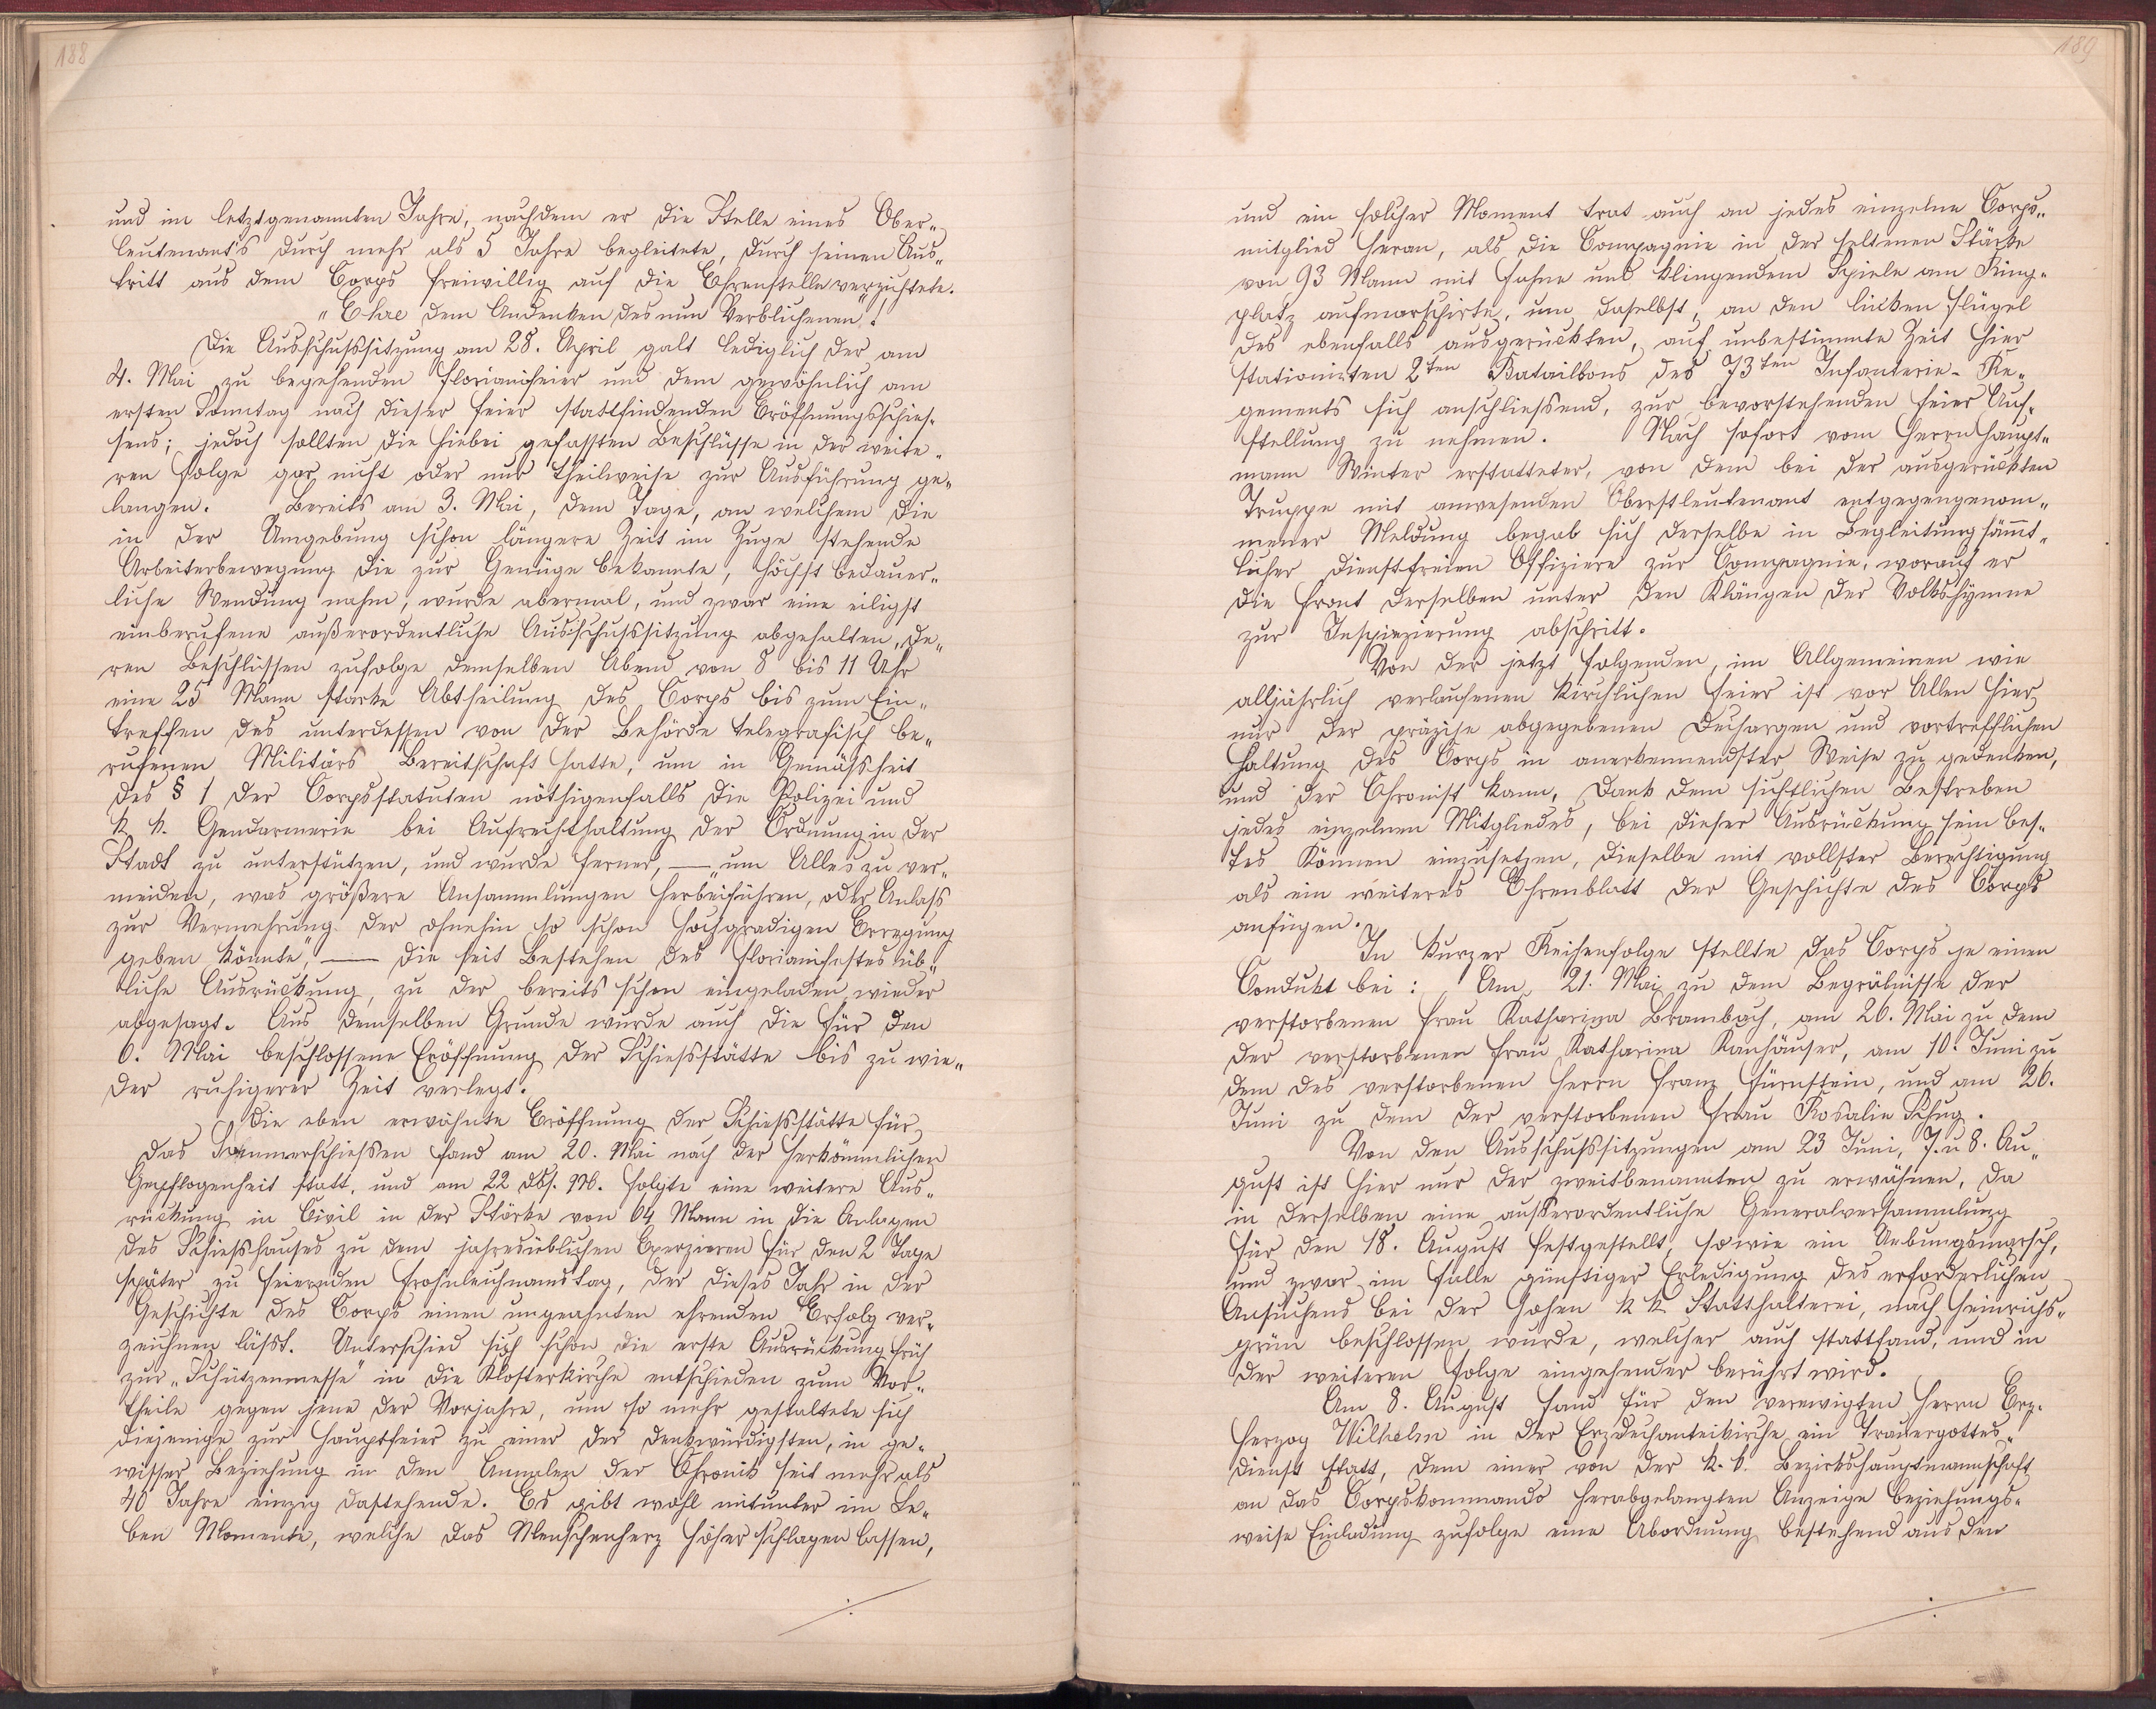 188
und im letztgenannten Jahre, nachdem er die Stelle eines Ober„
leutenant's durch mehr als 5 Jahre begleitete, durch seinen Aus„
tritt aus dem Corps freiwillig auf die Ehrenstelle verzichtete.
„Ehre dem Andenken des nun Verblichenen“!
Die Ausschußsitzung am 28. April galt lediglich der am
4. Mai zu begehenden Florianifeier und dem gewöhnlich am
ersten Sonntag nach dieser Feier stattfindenden Eröffnungsschies„
sens; jedoch sollten die hiebei gefassten Beschlüsse in der weite„
ren Folge gar nicht oder nur theilweise zur Ausführung ge„
langen. Bereits am 3. Mai, dem Tage, an welchem die
in der Umgebung schon längere Zeit im Zuge stehende
Arbeiterbewegung die zur Genüge bekannte, höchst bedauer„
liche Wendung nahm, wurde abermal, und zwar eine eiligst
einberufene außerordentliche Ausschußsitzung abgehalten, de„
ren Beschlüssen zufolge demselben Abend von 8 bis 11 Uhr
eine 25 Mann starke Abtheilung des Corps bis zum Ein„
treffen des unterdessen von der Behörde telegrafisch be„
rufenen Militärs Bereitschaft hatte, um in Gemäßheit
des § 1 der Corpsstatuten nöthigenfalls die Polizei und
k k. Gendarmerie bei Aufrechthaltung der Ordnung in der
Stadt zu unterstützen, und wurde ferner, — „um Alles zu ver„
meiden, was größere Ansammlungen herbeiführen, oder Anlass
zur Vermehrung der ohnehin so schon hochgradigen Erregung
geben könnte“, — die seit Bestehen des Florianifestes üb„
liche Ausrückung, zu der bereits schon eingeladen, wieder
abgesagt. Aus demselben Grunde wurde auch die für den
6. Mai beschlossene Eröffnung der Schiessstätte bis zu wie„
der ruhigerer Zeit verlegt.
Die eben erwähnte Eröffnung der Schießstätte für
das Sommerschießen fand am 20. Mai nach der herkömmlichen
Gepflogenheit statt, und am 22 dbs. M. folgte eine weitere Aus„
rückung in Civil in der Stärke von 64 Mann in die Anlagen
des Schießhauses zu dem jahresüblichen Exerzieren für den 2 Tage
später zu feiernden Frohnleichnamstag, der dieses Jahr in der
Geschichte des Corps einen ungeahnten ehrenden Erfolg ver„
zeichnen lässt. Unterschied sich schon die erste Ausrückung früh
zur „Schützenmesse“ in die Klosterkirche entschieden zum Vor„
theile gegen jene der Vorjahre, um so mehr gestaltete sich
diejenige zur Hauptfeier zu einer der denkwürdigsten, in ge„
wisser Beziehung in den Annalen der Chronik seit mehr als
40 Jahre einzig dastehende. Es gibt wohl mitunter im Le„
ben Momente, welche das Menschenherz höher schlagen lassen,
189
und ein solcher Moment trat auch an jedes einzelne Corps„
mitglied heran, als die Compagnie in der seltenen Stärke
von 93 Mann mit Fahne und klingendem Spiele am Ring„
platz aufmarschirte, um daselbst, an den linken Flügel
des ebenfalls ausgerückten, auf unbestimmte Zeit hier
stationirten 2ten Bataillons des 73ten Infanterie-Re„
gements sich anschliessend, zur bevorstehenden Feier Auf„
stellung zu nehmen. Nach sofort vom Herrn Haupt„
mann Winter erstatteter, von dem bei der ausgerückten
Truppe mit anwesenden Oberstleutenant entgegengenom„
mener Meldung begab sich derselbe in Begleitung sämmt„
licher dienstfreien Offiziere zur Compagnie, worauf er
die Front derselben unter den Klängen der Volkshymne
zur Inspizierung abschritt.
Von der jetzt folgenden, im Allgemeinen wie
alljährlich verlaufenen kirchlichen Feier ist vor Allen hier
nur der präzise abgegebenen Dechargen und vortrefflichen
Haltung des Corps in anerkennendster Weise zu gedenken,
und der Chronist kann, Dank dem sichtlichen Bestreben
jedes einzelnen Mitgliedes, bei dieser Ausrückung sein bes„
tes Können einzusetzen, dieselbe mit vollster Berechtigung
als ein weiteres Ehrenblatt der Geschichte des Corps
anfügen.
In kurzer Reihenfolge stellte das Corps je einen
Condukt bei: Am 21. Mai zu dem Begräbnisse der
verstorbenen Frau Katharina Brambach, am 26. Mai zu dem
der verstorbenen Frau Katharina Kanhäuser, am 10. Juni zu
dem des verstorbenen Herrn Franz Fürnstein, und am 26.
Juni zu dem der verstorbenen Frau Rosalie Schug.
Von den Ausschußsitzungen am 23 Juni, 7. u 8. Au„
gust ist hier nur der zweitbenannten zu erwähnen, da
in derselben eine außerordentliche Generalversammlung
für den 18. August festgestellt, sowie ein Uebungsmarsch,
und zwar im Falle günstiger Erledigung des erforderlichen
Ansuchens bei der hohen k k. Statthalterei, nach Heinrichs„
grün beschlossen wurde, welcher auch stattfand, und in
der weiteren Folge eingehender berührt wird.
Am 8. August fand für den verewigten Herrn Erz„
herzog Wilhelm in der Erzdechanteikirche ein Trauergottes„
dienst statt, dem einer von der k. k. Bezirkshauptmannschaft
an das Corpskommando herabgelangten Anzeige beziehungs„
weise Einladung zufolge eine Abordnung bestehend aus den